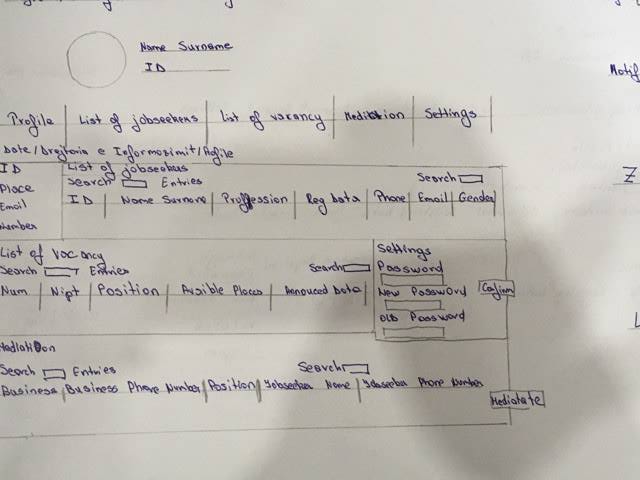 Name Surname
ID
Motif
Profile List of jobseekers List of vacancy Mediation Settings
Date/Drejtoria e Informazimit/Profile
ID
Place
Email
Number
List of jobseekers
Search Entries Search
ID Name Surname Profession Reg Data Phone Email Gender
List of vacancy
Search Entries Search
Num Nipt Position Avsible Places Annouced Data
Settings
Password
New Password
OLD Password
Confirm
Mediation
Search Entries Search
Business Business Phone Number Position Jobseeker Name Jobseeker Phone Number
Mediatate
Z
L